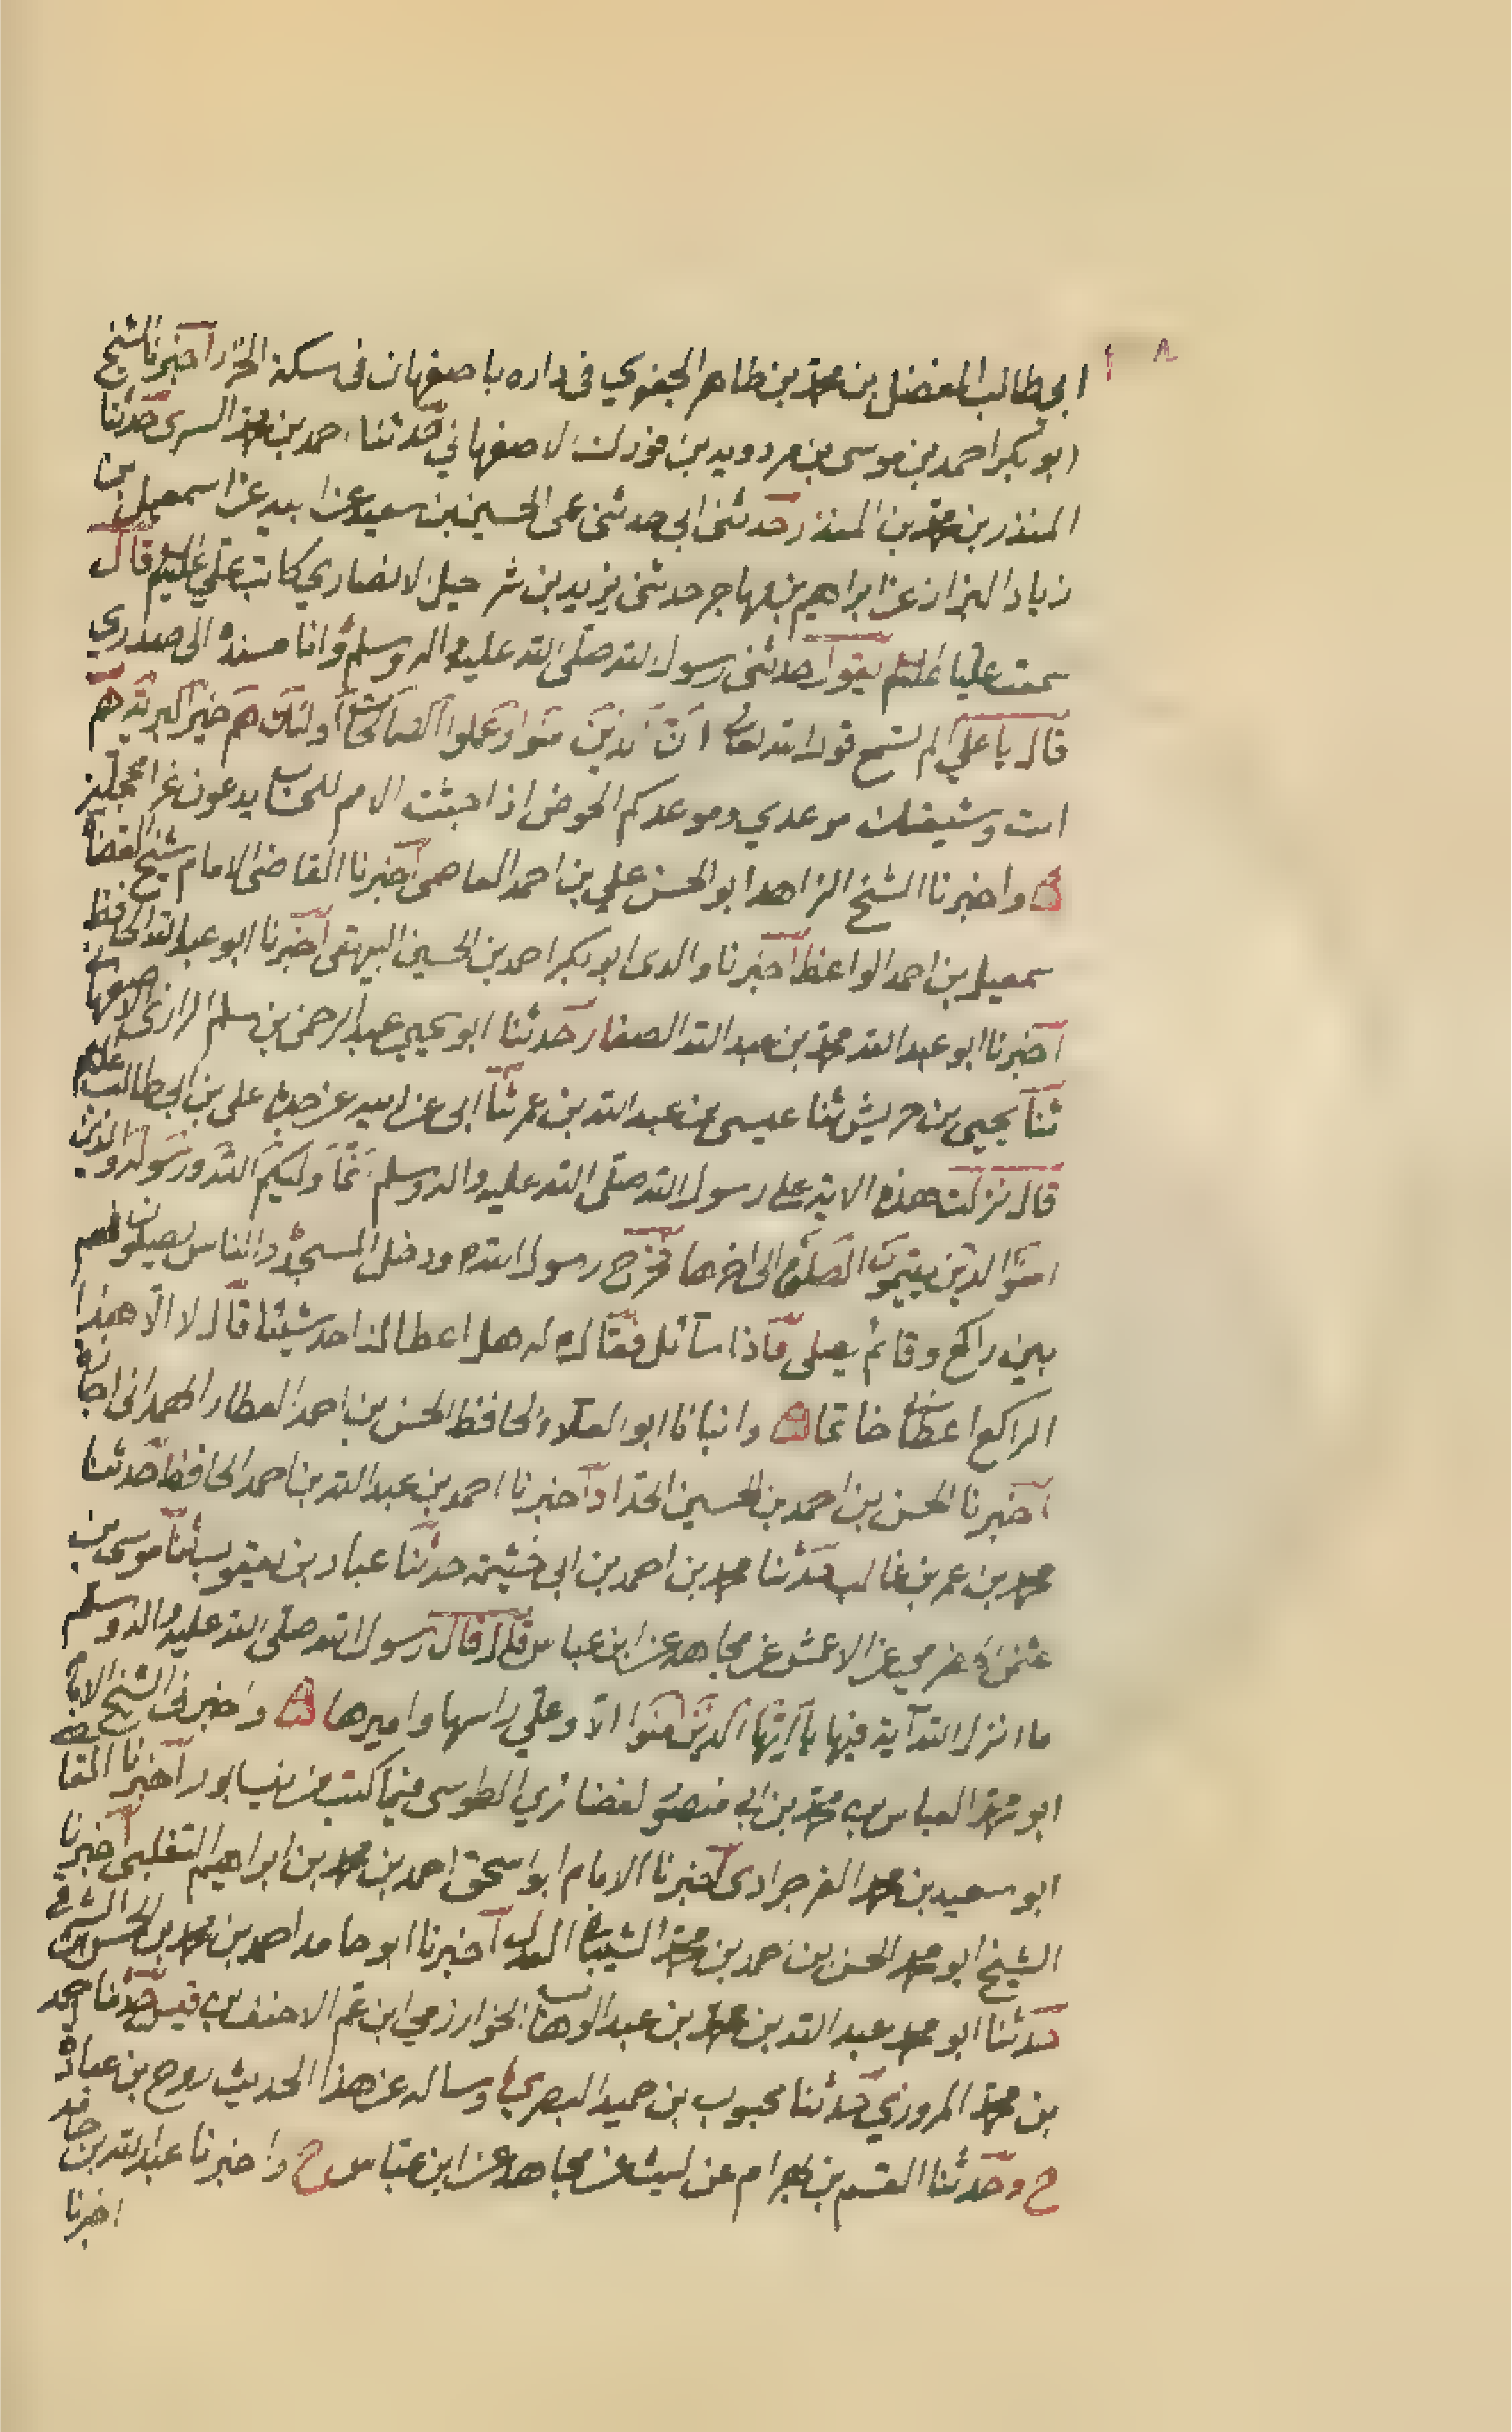 ابي طالب المفضل بن محمد بن طاهر الجعفري في داره باصفهان في سكة الخوز اخبرنا الشيخ
ابو بكر احمد بن موسى بن مردويه بن فورك الاصفهاني حدثنا احمد بن محمد السرى حدثنا
المنذر بن محمد بن المنذر حدثنى ابي حدثنى عمى الحسين بن سعيد عن ابيه عن اسمعيل بن
زياد البزاز عن ابراهيم بن مهاجر حدثنى يزيد بن شرحيل الانصاري كاتب علي عليه السلم قال
سمعت عليا عليه السلم يقول حدثنى رسول الله صلى الله عليه واله وسلم وانا مسنده الى صدري
قال يا علي الم تسمع قول الله تعالى ان الذين امنوا وعملوا الصالحات اولئك هم خير البرية هم
انت وشيعتك موعدي وموعدكم الحوض اذا اجتثت الامم للحساب يدعون غرا محجلين
واخبرنا الشيخ الزاهد ابو الحسن علي بن احمد العاصمى اخبرنا القاضى الامام شيخ القضاة
سمعيل بن احمد الواعظ اخبرنا والدى ابو بكر احمد بن الحسين البيهقى اخبرنا ابو عبد الله الحافظ
اخبرنا ابو عبد الله محمد بن عبد الله الصفار حدثنا ابو يحيى عبد الرحمن بن مسلم الرازى الاصفهاني
ثنا يحيى بن حريش ثنا عيسى بن عبد الله بن عمر ثنا ابى عن ابيه عن جده على بن ابي طالب عليه السلم
قال نزلت هذه الاية على رسول الله صلى الله عليه واله وسلم انما وليكم الله ورسوله والذين
امنوا الذين يقيمون الصلوة الى اخرها فخرج رسول الله ودخل المسجد والناس يصلون
بين راكع وقائم يصلى فاذا سائل فقال له هل اعطاك احد شيئا قال لا الا هذا
الراكع اعطانى خاتما وانبانا ابو العلاء الحافظ الحسن بن احمد العطار الهمدانى اجازة
اخبرنا الحسن بن احمد بن الحسين الحداد اخبرنا احمد بن عبد الله بن احمد الحافظ حدثنا
محمد بن عمر بن غالب حدثنا محمد بن احمد بن ابى خيثمة حدثنا عباد بن يعقوب ثنا موسى بن
عثمن الحضرمي عن الاعمش عن مجاهد عن ابن عباس قال قال رسول الله صلى الله عليه واله وسلم
ما انزل الله آية فيها يا ايها الذين امنوا الا وعلي راسها واميرها واخبرنى الشيخ الامام
ابو محمد العباس بن محمد بن ابي منصور الغضائري الطوسى فيما كتب من نيسابور اخبرنا القاضى
ابو سعيد بن محمد الفرجرادى اخبرنا الامام ابو اسحق احمد بن محمد بن ابراهيم الثعلبى اخبرنا
الشيخ ابو محمد الحسن بن احمد بن محمد الشيبانى العدل اخبرنا ابو حامد احمد بن محمد بن الحسن الشرقى
حدثنا ابو محمد عبد الله بن محمد بن عبد الوهاب الخوارزمي ابن عم الاحنف بن قيس حدثنا احمد
بن محمد المروزي حدثنا محبوب بن حميد البصري وساله عن هذا الحديث روح بن عبادة
ح وحدثنا القسم بن بهرام عن ليث عن مجاهد عن ابن عباس ح واخبرنا عبد الله بن حامد
اخبرنا